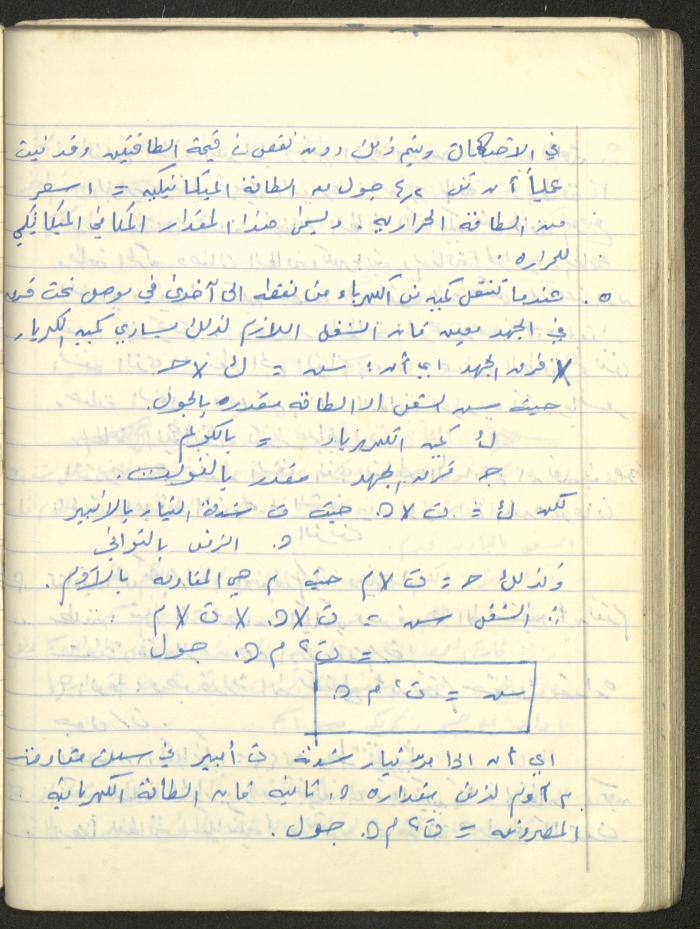 في الاحتكاك ويتم ذلك دون نقص في قيمة الطاقتين وقد ثبت
علمياً أن كل ٤٫٢ جول من الطاقة الميكانيكية = ١ سعر
من الطاقة الحرارية. ويسمى هذا المقدار المكافئ الميكانيكي
للحراره.
٥. عندما تنتقل كميه من الكهرباء من نقطه الى آخرى في موصل تحت فرق
في الجهد معين فان الشغل اللازم لذلك يساوي كميه الكهرباء
X فرق الجهد اي أن: سه = ك X حـ
حيث سه الشغل او الطاقه مقدره بالجول.
ك كميه الكهرباء = بالكولم
حـ فرق الجهد مقدراً بالفولت.
لكن ك = ت X ن. حيث ت شدة التيار بالأمبير
ن. الزمن بالثواني
وكذلك حـ = ت X م حيث م هي المقاومه بالأوم.
∴ الشغل سه = ت X ن. X ت X م
= ت٢ م ن. جول
سه = ت٢ م ن
اي أن اذا مر تيار شدته ت أمبير في سلك مقاومته
م أوم لزمن مقداره ن. ثانيه فان الطاقة الكهربائيه
المصروفه = ت٢ م ن. جول.